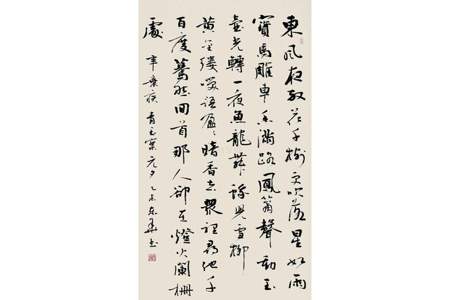 東風夜放花千樹更吹落星如雨
寶馬雕車香滿路鳳簫聲動玉
壺光轉一夜魚龍舞蛾兒雪柳
黃金縷笑語盈盈暗香去眾裡尋他千
百度驀然回首那人卻在燈火闌珊
處 辛棄疾 青玉案 元夕 乙未 書